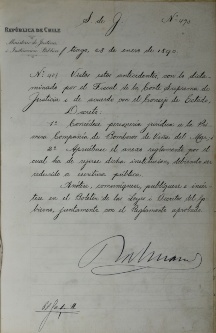 S. de J.
REPÚBLICA DE CHILE
Ministerio de Justicia
é Instruccion Pública
enero de 1890
Vistos estos antecedentes, con lo dicta-
minado por el Fiscal de la Corte Suprema de
Justicia i de acuerdo con el Consejo de Estado,
Decreto:
1º Concédese personería jurídica a la Pri-
mera Compañía de Bomberos de Viña del Mar, i
2º Apruébase el anexo reglamento por el
cual ha de rejirse dicha institucion, debiendo ser
reducido a escritura pública.
Anótese, comuníquese, publíquese e insér-
tese en el Boletin de las Leyes i Decretos del Go-
bierno, juntamente con el Reglamento aprobado
Balmaceda